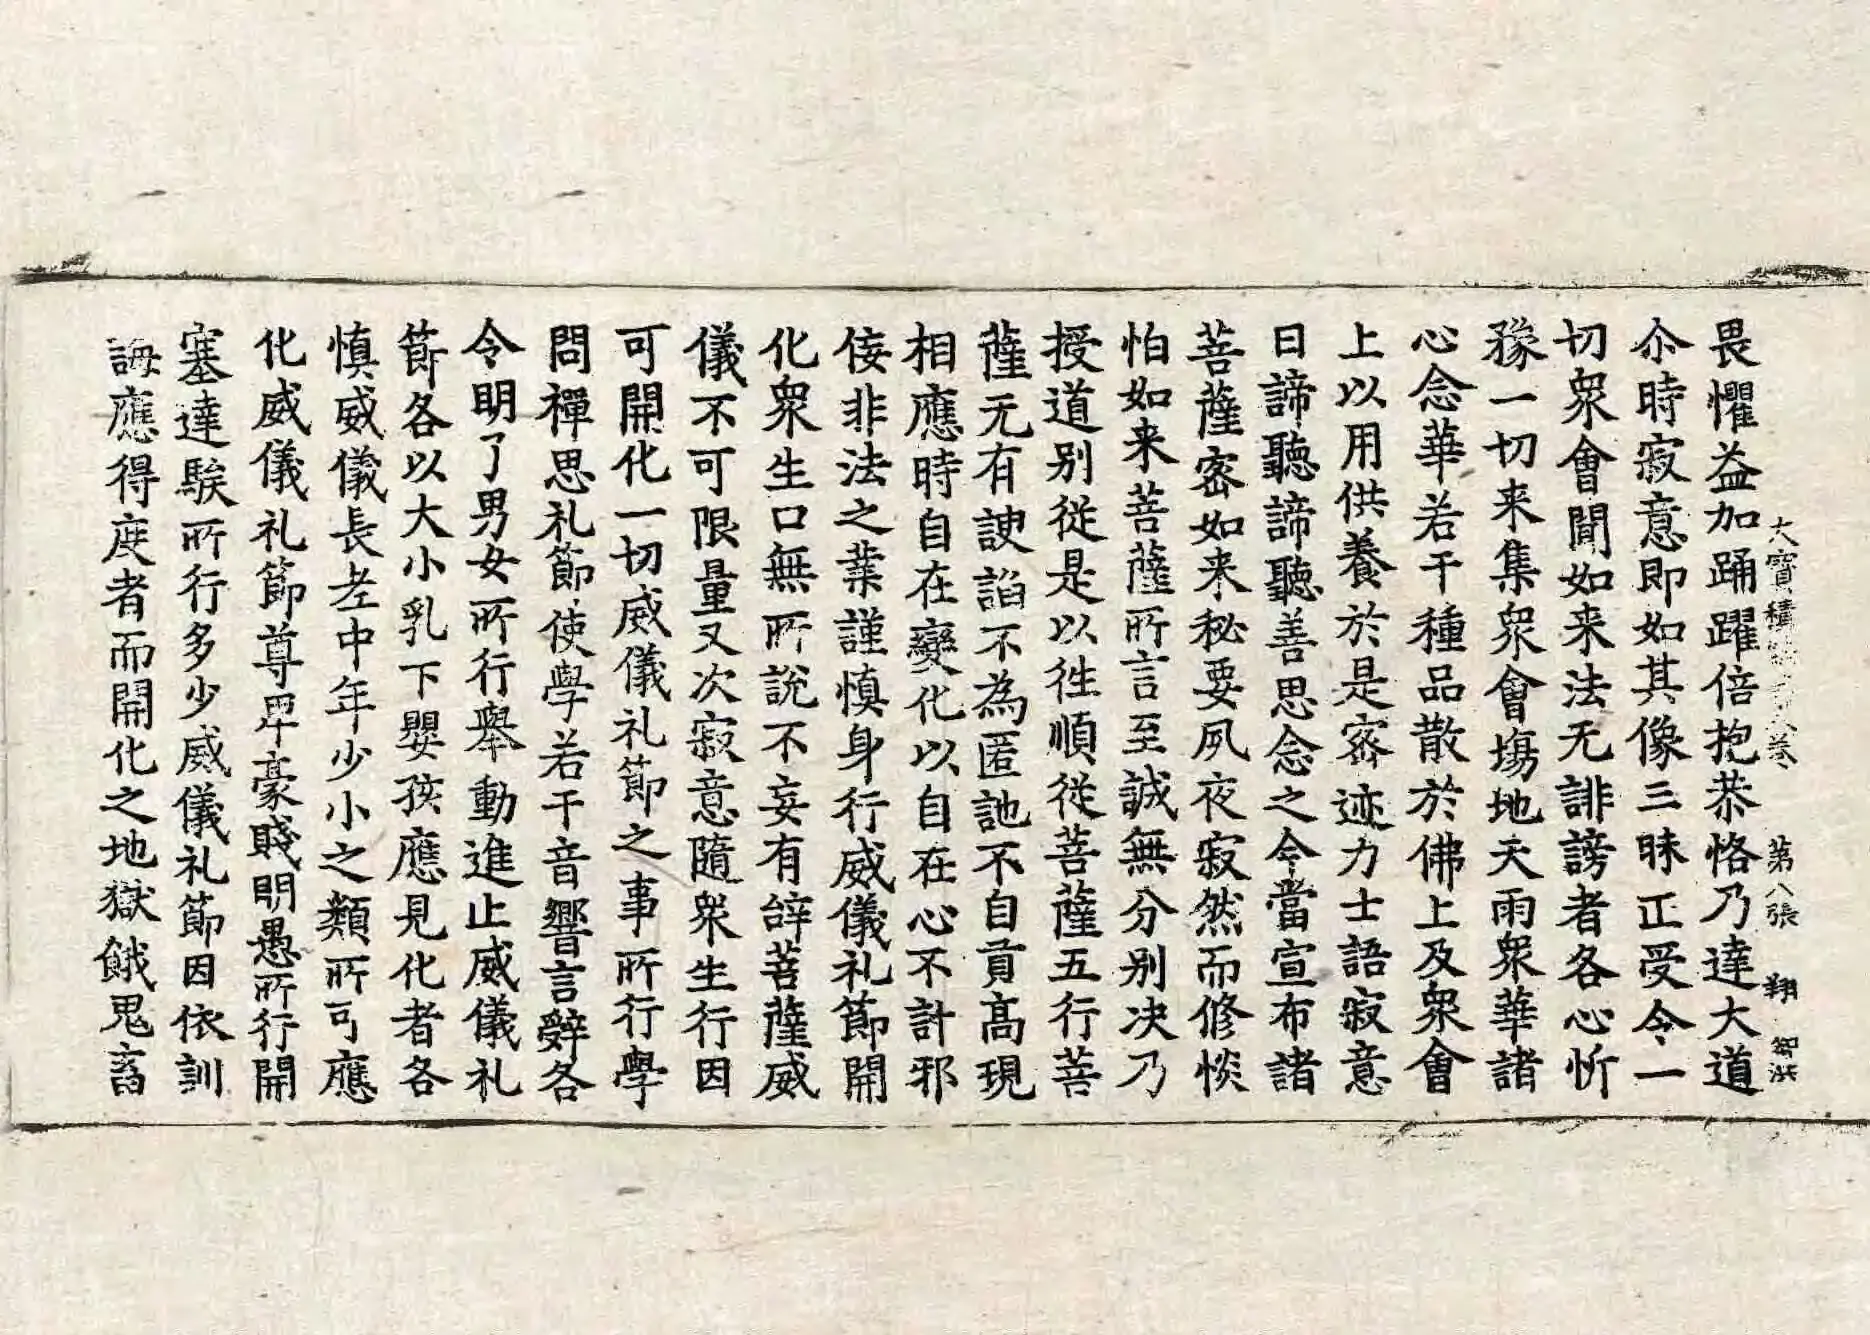 大寶積 卷 第八張 翔
畏懼益加踊躍倍抱恭恪乃達大道
尒時寂意即如其像三昧正受令一
切衆會聞如来法无誹謗者各心忻
豫一切来集衆會塲地天雨衆華諸
心念華若干種品散於佛上及衆會
上以用供養於是密迹力士語寂意
曰諦聽諦聽善思念之今當宣布諸
菩薩密如来秘要夙夜寂然而修惔
怕如来菩薩所言至誠無分别决乃
授道别從是以徃順從菩薩五行菩
薩无有諛諂不為匿訑不自貢高現
相應時自在變化以自在心不計邪
侫非法之業謹慎身行威儀礼節開
化衆生口無所說不妄有辝菩薩威
儀不可限量又次寂意隨衆生行因
可開化一切威儀礼節之事所行學
問禪思礼節使學若干音響言辤各
令明了男女所行舉動進止威儀礼
節各以大小乳下嬰孩應見化者各
慎威儀長老中年少小之類所可應
化威儀礼節尊卑豪賤明愚所行開
塞達騃所行多少威儀礼節因依訓
誨應得度者而開化之地獄餓鬼畜